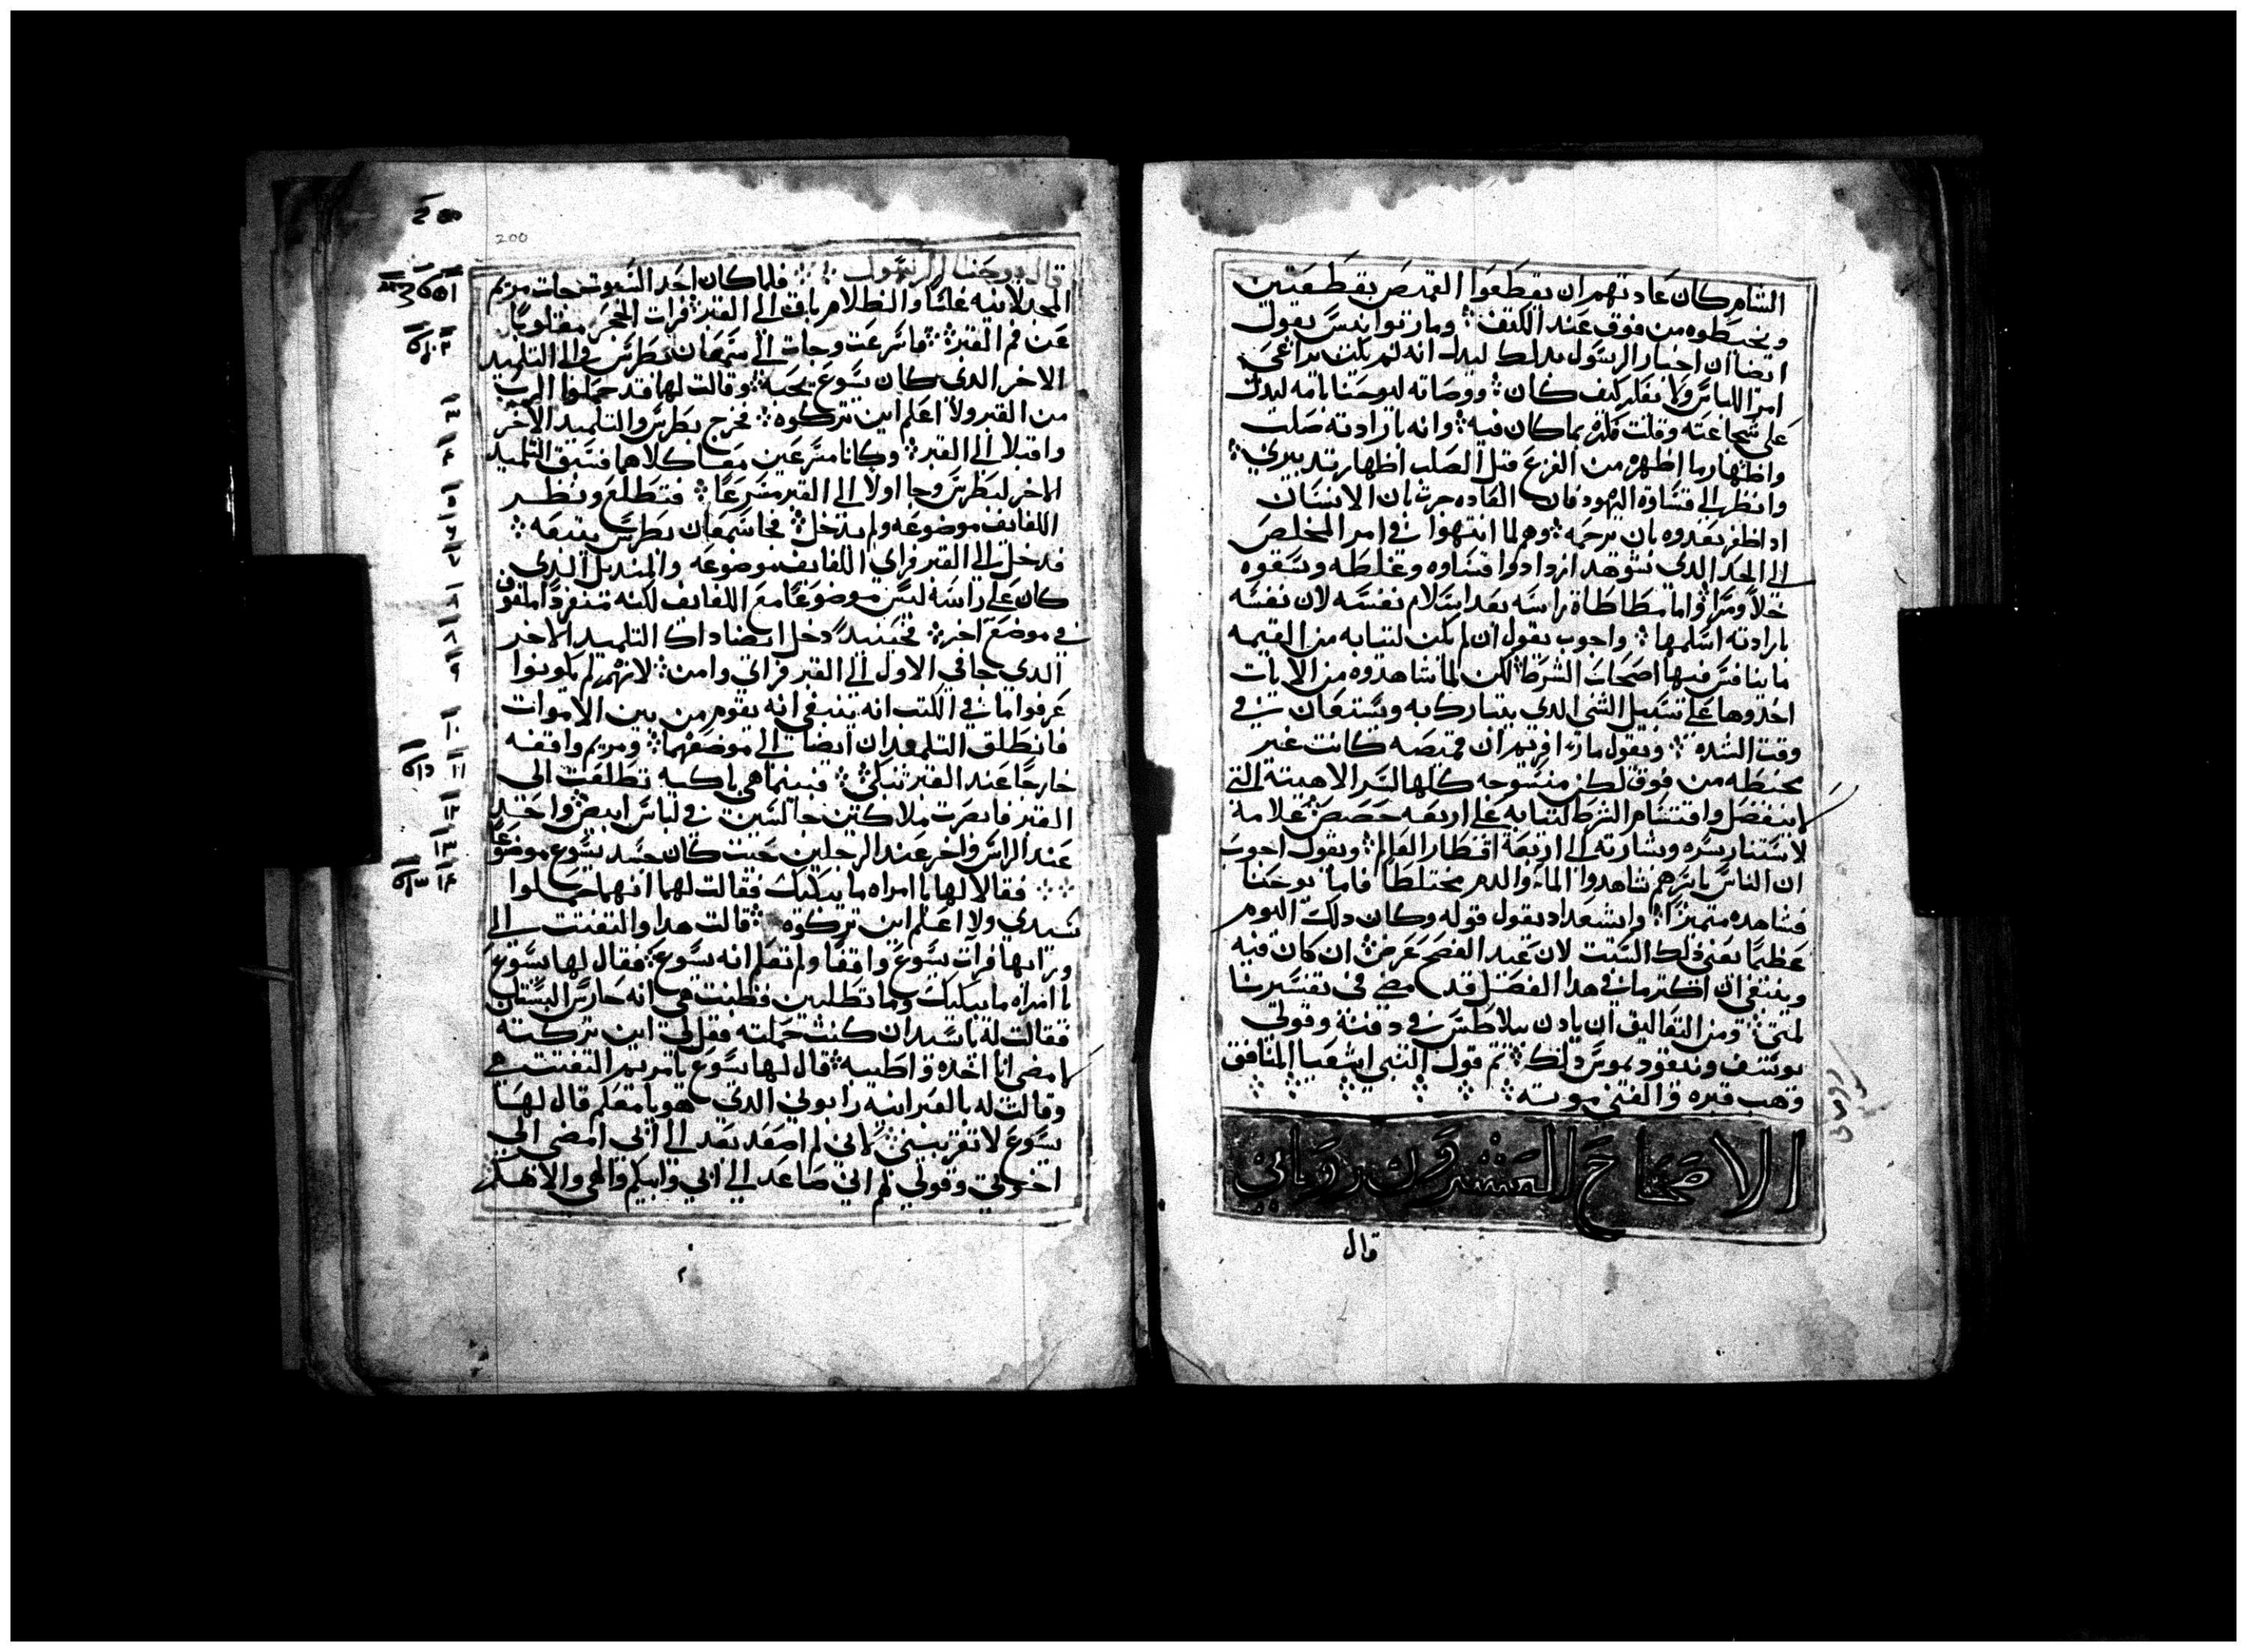 الشام كان عادتهم ان يقطعوا القميص بقطعتين
ويخيطوه من فوق عند الكتف ومار توانيس يقول
ايضا ان اخبار الرسول بدلك ليدل انه لم يكن يراعي
امر اللباس ولا يفكر كيف كان ووصاته ليوحنا بامه ليدل
على شجاعته وقلت فكره بما كان فيه وانه بارادته صلب
واظهار ما اظهره من الفزع قبل الصلب اظهار تدبيري
وانظر الي قساوة اليهود فان العاده جرت بان الانسان
ادا ظفر بعدوه بان يرحمه وهم لما انتهوا في امر المخلص
الي الحد الدي نشوهد ازدادوا قساوه وغلظه وسقوه
خلا ومرا واما مطاطاة راسه بعد اسلام نفسه لان نفسه
بارادته اسلمها واجوب يقول ان لم يكن لثيابه من القيمه
ما يتنافس فيها اصحاب الشرط لكن لما شاهدوه من الايات
اخدوها على سبيل الشي الدي يتبارك به ويستعان به في
وقت الشده ويقول مار افريم ان قميصه كانت غير
مخيطه من فوق لكن منسوجه كلها لسر الاهيته التي
لا تنفصل واقتسام الشرط لثيابه على اربعه حصص علامة
لاستنار سره وبشارته الى اربعة اقطار العالم ويقول اجوب
ان الناس باسرهم شاهدوا الماء والدم مختلطا فاما يوحنا
فشاهده متميزا وايشعداد يقول قوله وكان دلك اليوم
عظيما يعني دلك السبت لان عيد الفصح عرض ان كان فيه
وينبغي ان اكثر ما في هدا الفصل قد مضي في تفسيرنا
لمتى ومن التعاليق ان يادن بيلاطس في دفنه وقولي
يوسف ونيقوديموس دلك تم قول النبي اشعيا المنافق
وهب قبره والغني موته
الاصحاح العشرون روماني
قال
200
قال يوحنا الرسول فلما كان احد السبوت جات مريم
المجدلانيه غلسا والظلام باقي الى القبر فرات الحجر مقلوبا
عن فم القبر فاسرعت وجات الى سمعان بطرس والى التلميد
الاخر الدي كان يسوع يحبه وقالت لها قد حملوا الرب
من القبر ولا اعلم اين تركوه فخرج بطرس والتلميد الاخر
واقبلا الي القبر وكانا مسرعين معا كلاهما فسبق التلميد
الاخر لبطرس وجا اولا الى القبر مسرعا فتطلع ونظر
اللفايف موضوعه ولم يدخل فجا سمعان بطرس يتبعه
فدخل الى القبر فراي اللفايف موضوعه والمنديل الدي
كان على راسه ليس موضوعا مع اللفايف لكنه منفردا ملفوف
في موضع اخر فحينيد دخل ايضا داك التلميد الاخر
الدي جا في الاول الى القبر فراي وامن لانهم لم يكونوا
عرفوا ما في الكتب انه ينبغي انه يقوم من بين الاموات
فانطلق التلميدان ايضا الى موضعهما ومريم واقفه
خارجا عند القبر تبكي فبينما هي باكيه تطلعت الى
القبر فابصرت ملاكين جالسين في لباس ابيض واحد
عند الراس واخر عند الرجلين حيت كان جسد يسوع موضوعا
فقالا لها يا امراه ما يبكيك فقالت لهما انهما حملوا
سيدي ولا اعلم اين تركوه قالت هدا والتفتت الى
ورايها فرات يسوع واقفا ولم تعلم انه يسوع فقال لها يسوع
يا امراه ما يبكيك وما تطلبين فظنت هي انه حارس البستان
فقالت له يا سيد ان كنت حملته فقل لي اين تركته
لامضي انا اخده واطيبه قال لها يسوع يا مريم التفتت هي
وقالت له بالعبرانيه رابوني الدي هو يا معلم قال لها
يسوع لا تقربيني لاني لم اصعد بعد الى ابي امضي الي
اخوتي وقولي لهم اني صاعد الى ابي وابيكم والهي والاهكم